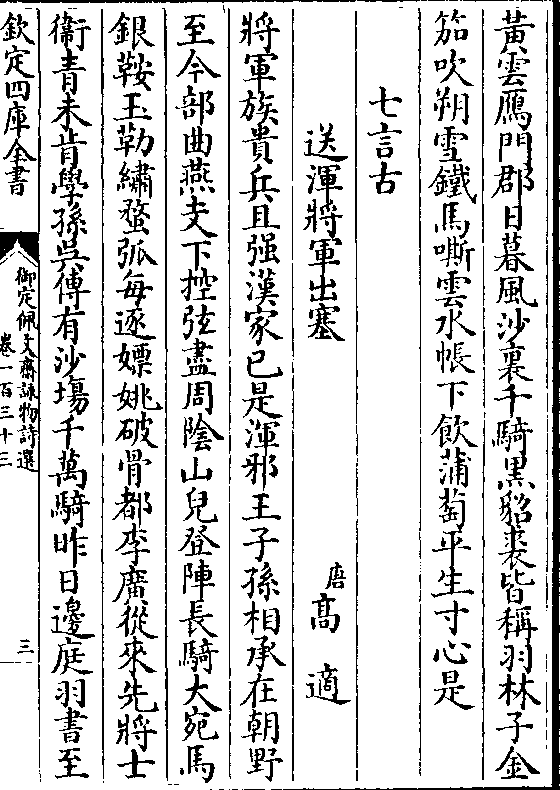 黃雲鴈門郡日暮風沙裏千騎黑貂裘皆稱羽林子金
笳吹朔雪鐵馬嘶雲水帳下飲蒲萄平生寸心是
七言古
送渾將軍出塞
唐 高適
將軍族貴兵且强漢家已是渾邪王子孫相承在朝野
至今部曲燕支下控弦盡用陰山兒登陣長騎大宛馬
銀鞍玉勒繡蝥弧每逐嫖姚破骨都李廣從來先將士
衞青未肯學孫吳傳有沙塲千萬騎昨日邊庭羽書至
欽定四庫全書
御定佩文齋詠物詩選
卷一百三十三
三